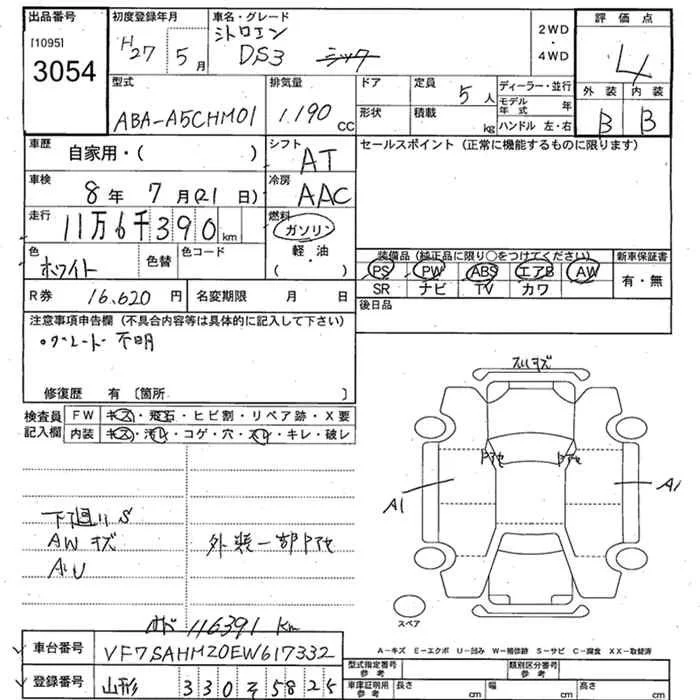 出品番号 初度登録年月 車名・グレード 2WD・4WD 評価点
[1095] H27 5月 シトロエン
3054 DS3 シック 4
型式 排気量 ドア 定員 5人 ディーラー・並行 外装 内装
ABA-A5CHM01 1.190 CC 形状 積載 kg モデル年式 年 B B
ハンドル 左・右
車歴 自家用・( ) シフト AT セールスポイント（正常に機能するものに限ります）
車検 8年 7月(21日) 冷房 AAC
走行 11万6千390km 燃料 ガソリン
色 ホワイト 色替 色コード 軽・油
( )
装備品（純正品に限り○をつけてください） 新車保証書
PS PW ABS エアB AW 有・無
SR ナビ TV カワ
R券 16,620円 名変期限 月 日 後日品
注意事項申告欄（不具合内容等は具体的に記入して下さい）
。グレード 不明
修復歴 有〔箇所 〕
検査員記入欄 FW キズ・飛石・ヒビ割・リペア跡・X要
内装 キズ・汚レ・コゲ・穴・スレ・キレ・破レ
スリキズ
ドアセ ドアセ
A1 A1
下廻りS
AWキズ 外装一部ドアセ
AU
スペア
オド 116391 Km
A－キズ E－エクボ U－凹み W－補修跡 S－サビ C－腐食 XX－取替済
車台番号 VF7SAHMZ0EW617332
登録番号 山形 330 そ 5825
型式指定番号 参考 類別区分番号 参考
車庫証明用 参考 長さ cm 幅 cm 高さ cm